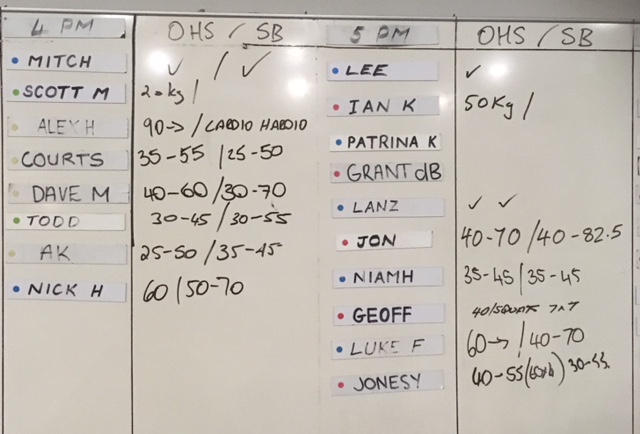 4 PM OHS / SB
MITCH ✓ / ✓
SCOTT M 20kg /
ALEX H 90-> / CARDIO HARDIO
COURTS 35-55 / 25-50
DAVE M 40-60 / 30-70
TODD 30-45 / 30-55
AK 25-50 / 35-45
NICK H 60 / 50-70
5 PM OHS / SB
LEE ✓
IAN K 50Kg /
PATRINA K
GRANT dB
LANZ ✓ ✓
JON 40-70 / 40-82.5
NIAMH 35-45 / 35-45
GEOFF 40/SQUATS 7x7
LUKE F 60-> / 40-70
JONESY 40-55 30-55